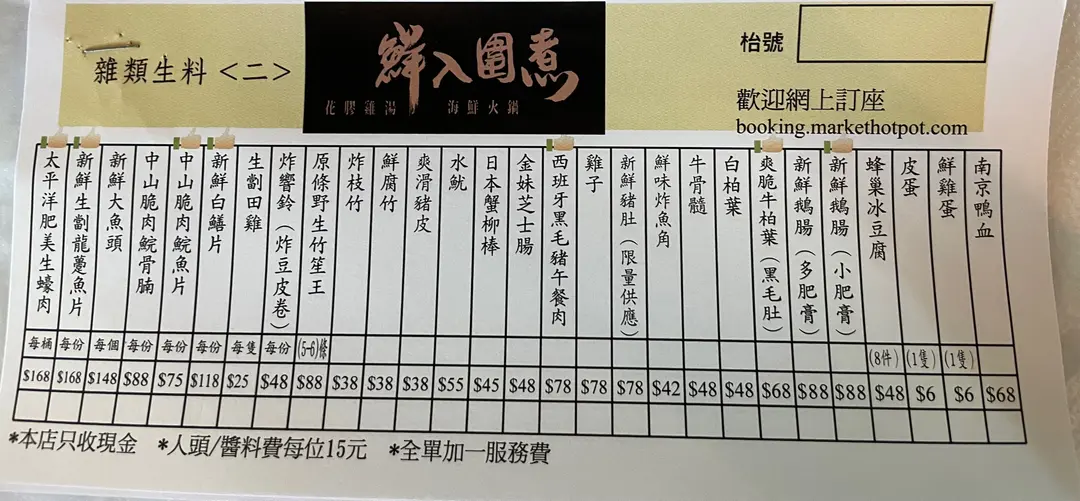 雜類生料<二>
鮮入圍煮
花膠雞湯 海鮮火鍋
枱號
歡迎網上訂座
booking.markethotpot.com
南京鴨血 $68
鮮雞蛋 (1隻) $6
皮蛋 (1隻) $6
蜂巢冰豆腐 (8件) $48
新鮮鵝腸（小肥膏） $88
新鮮鵝腸（多肥膏） $88
爽脆牛柏葉（黑毛肚） $68
白柏葉 $48
牛骨髓 $48
鮮味炸魚角 $42
新鮮豬肚（限量供應） $78
雞子 $78
西班牙黑毛豬午餐肉 $78
金妹芝士腸 $48
日本蟹柳棒 $45
水魷 $55
爽滑豬皮 $38
鮮腐竹 $38
炸枝竹 $38
原條野生竹笙王 (5-6)條 $88
炸響鈴（炸豆皮卷） 每份 $48
生劏田雞 每隻 $25
新鮮白鱔片 每份 $118
中山脆肉鯇魚片 每份 $75
中山脆肉鯇骨腩 每份 $88
新鮮大魚頭 每個 $148
新鮮生劏龍躉魚片 每份 $168
太平洋肥美生蠔肉 每桶 $168
*本店只收現金 *人頭/醬料費每位15元 *全單加一服務費